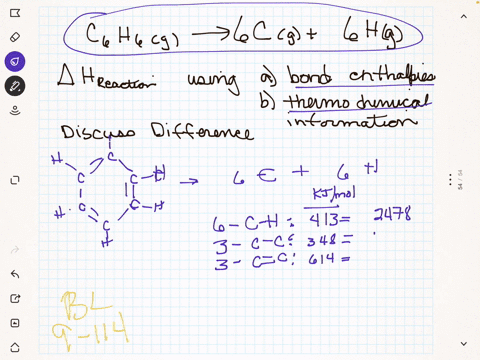 C6H6(g) → 6C(g) + 6H(g)
ΔH Reaction using a) bond enthalpies
b) thermochemical information
Discuss Difference
H C C C H C C H C H → 6 C + 6 H
KJ/mol
6 - C-H: 413 = 2478
3 - C-C: 348 =
3 - C=C: 614 =
BL
9-114
54 / 54